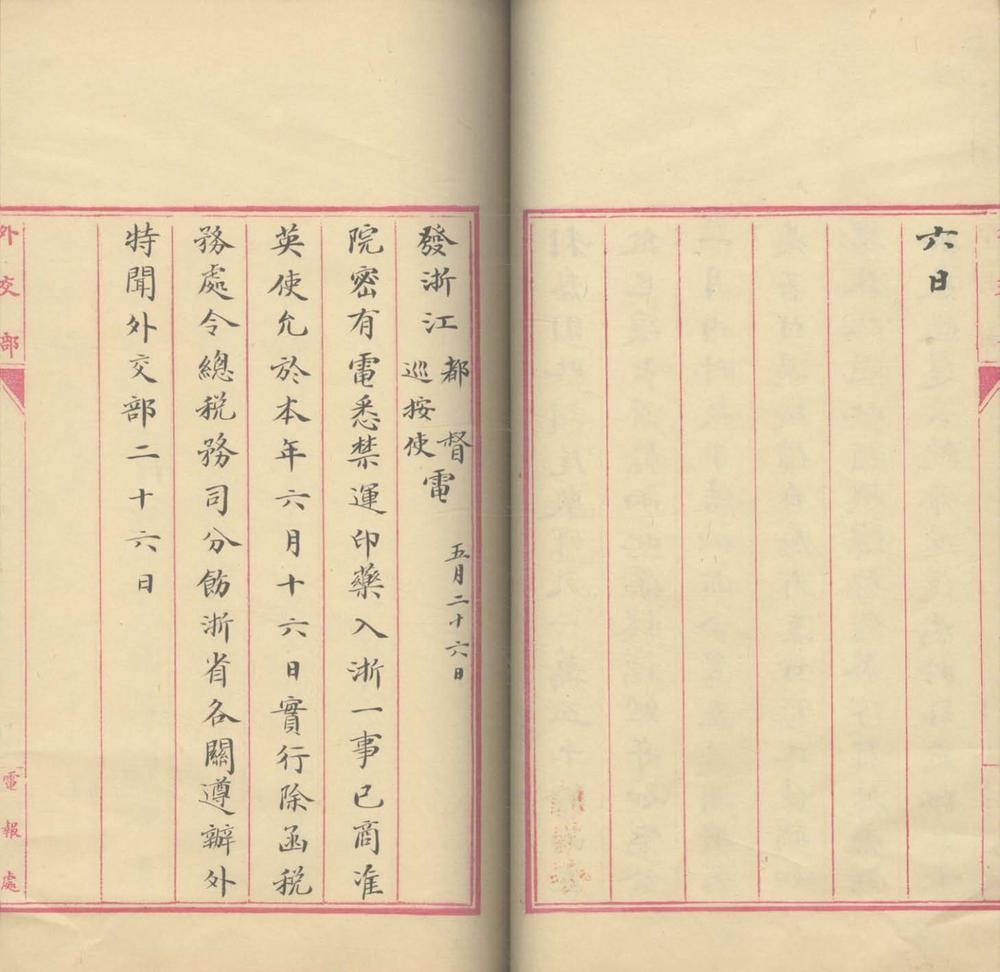 六日
發浙江都督巡按使電 五月二十六日
院密有電悉禁運印藥入浙一事已商准
英使允於本年六月十六日實行除函稅
務處令總稅務司分飭浙省各關遵辦外
特聞外交部二十六日
外交部
電報處